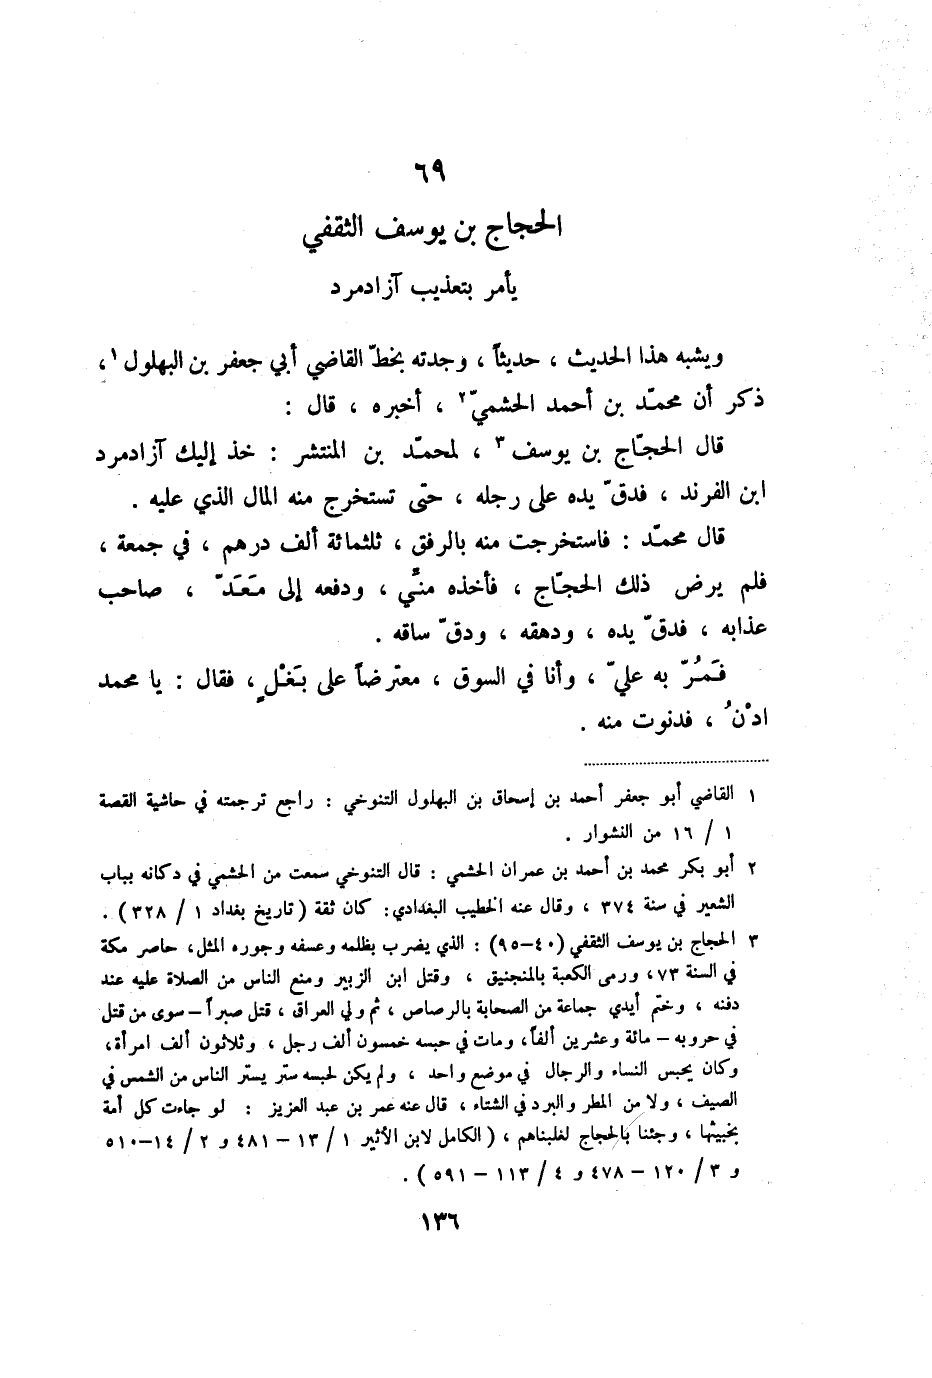 ٦٩
الحجاج بن يوسف الثقفي
يأمر بتعذيب آزادمرد
ويشبه هذا الحديث ، حديثاً ، وجدته بخطّ القاضي أبي جعفر بن البهلول ١ ،
ذكر أن محمّد بن أحمد الحشميّ ٢ ، أخبره ، قال :
قال الحجّاج بن يوسف ٣ ، لمحمّد بن المنتشر : خذ إليك آزادمرد
ابن الفرند ، فدقّ يده على رجله ، حتّى تستخرج منه المال الذي عليه .
قال محمّد : فاستخرجت منه بالرفق ، ثلثمائة ألف درهم ، في جمعة ،
فلم يرض ذلك الحجّاج ، فأخذه منّي ، ودفعه إلى مَعَدّ ، صاحب
عذابه ، فدقّ يده ، ودهقه ، ودقّ ساقه .
فَمُرّ به عليّ ، وأنا في السوق ، معترضاً على بَغْلٍ ، فقال : يا محمد
ادْنُ ، فدنوت منه .
١ القاضي أبو جعفر أحمد بن إسحاق بن البهلول التنوخي : راجع ترجمته في حاشية القصة
١ / ١٦ من النشوار .
٢ أبو بكر محمد بن أحمد بن عمران الحشمي : قال التنوخي سمعت من الحشمي في دكانه بباب
الشعير في سنة ٣٧٤ ، وقال عنه الخطيب البغدادي : كان ثقة ( تاريخ بغداد ١ / ٣٢٨ ) .
٣ الحجاج بن يوسف الثقفي (٤٠–٩٥) : الذي يضرب بظلمه وعسفه وجوره المثل ، حاصر مكة
في السنة ٧٣ ، ورمى الكعبة بالمنجنيق ، وقتل ابن الزبير ومنع الناس من الصلاة عليه عند
دفنه ، وختم أيدي جماعة من الصحابة بالرصاص ، ثم ولي العراق ، قتل صبراً – سوى من قتل
في حروبه – مائة وعشرين ألفاً ، ومات في حبسه خمسون ألف رجل ، وثلاثون ألف امرأة ،
وكان يحبس النساء والرجال في موضع واحد ، ولم يكن لحبسه ستر يستر الناس من الشمس في
الصيف ، ولا من المطر والبرد في الشتاء ، قال عنه عمر بن عبد العزيز : لو جاءت كل أمة
بخبيثها ، وجئنا بالحجاج لغلبناهم ، ( الكامل لابن الأثير ١ / ١٣ – ٤٨١ و ٢ / ١٤–٥١٠
و ٣ / ١٢٠ – ٤٧٨ و ٤ / ١١٣ – ٥٩١ ) .
١٣٦